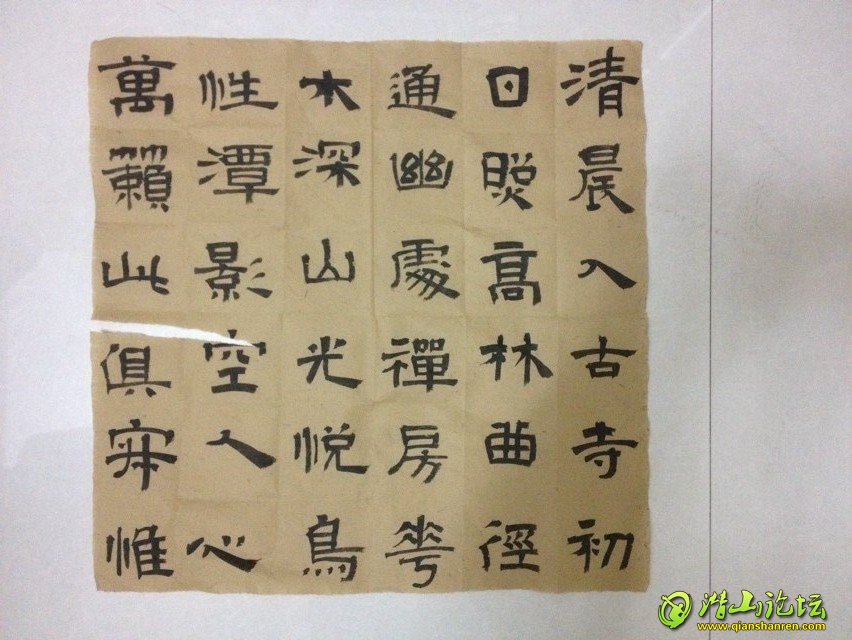 清晨入古寺初
日照高林曲徑
通幽處禪房花
木深山光悅鳥
性潭影空人心
萬籟此俱寂惟
潜山论坛
www.qianshanren.com